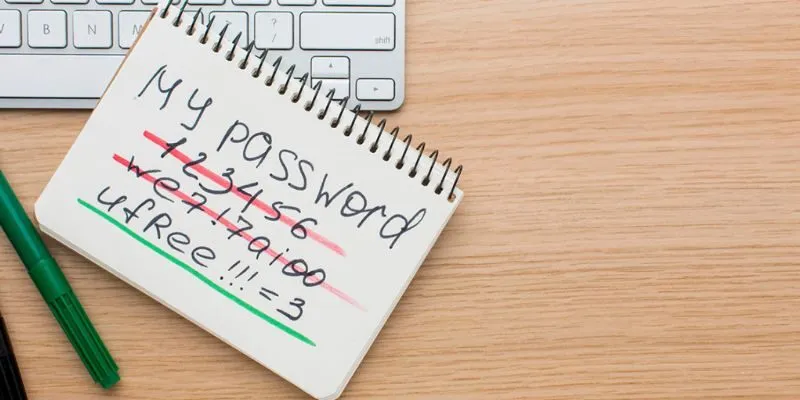 V B N M
? /
shift
My password
123456
we7!7aioo
ufRee!!!=3